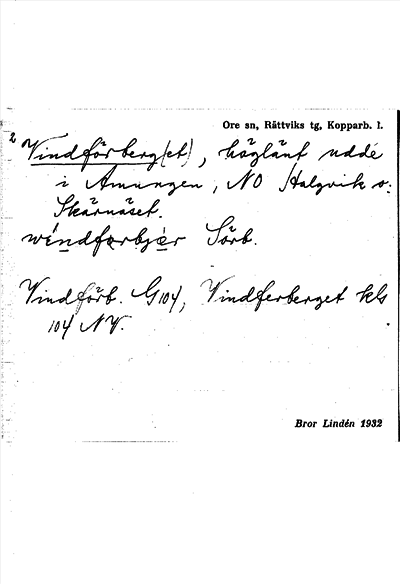 Ore sn, Rättviks tg, Kopparb. l.
2 Vindförberg(et), höglänt udde
i Amungen, NO Halgvik o.
Skärnäset.
Sörb.
Vindförb. G 104, Vindferberget kls
104 NV.
Bror Lindén 1932